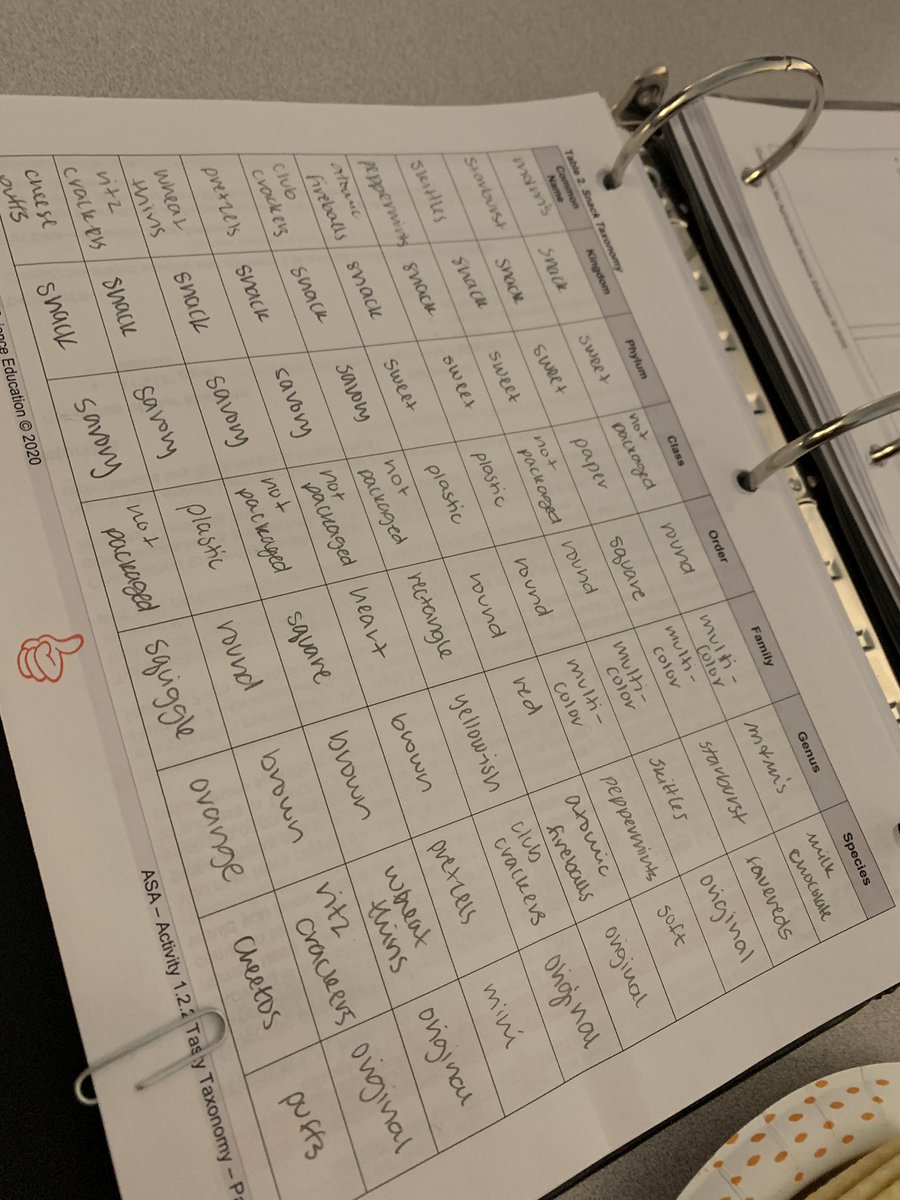 Table 2. Snack Taxonomy
Common Name Kingdom Phylum Class Order Family Genus Species
m&m's snack sweet not packaged round multi-color m&m's milk chocolate
starburst snack sweet paper square multi-color starburst favereds
skittles snack sweet not packaged round multi-color skittles original
peppermints snack sweet plastic round multi-color peppermints soft
atomic fireballs snack sweet plastic round red atomic fireballs original
club crackers snack savory not packaged rectangle yellowish club crackers original
pretzels snack savory not packaged heart brown pretzels mini
wheat thins snack savory not packaged square brown wheat thins original
ritz crackers snack savory plastic round brown ritz crackers original
cheese puffs snack savory not packaged squiggle orange cheetos puffs
Education © 2020
ASA – Activity 1.2.2 Tasty Taxonomy –